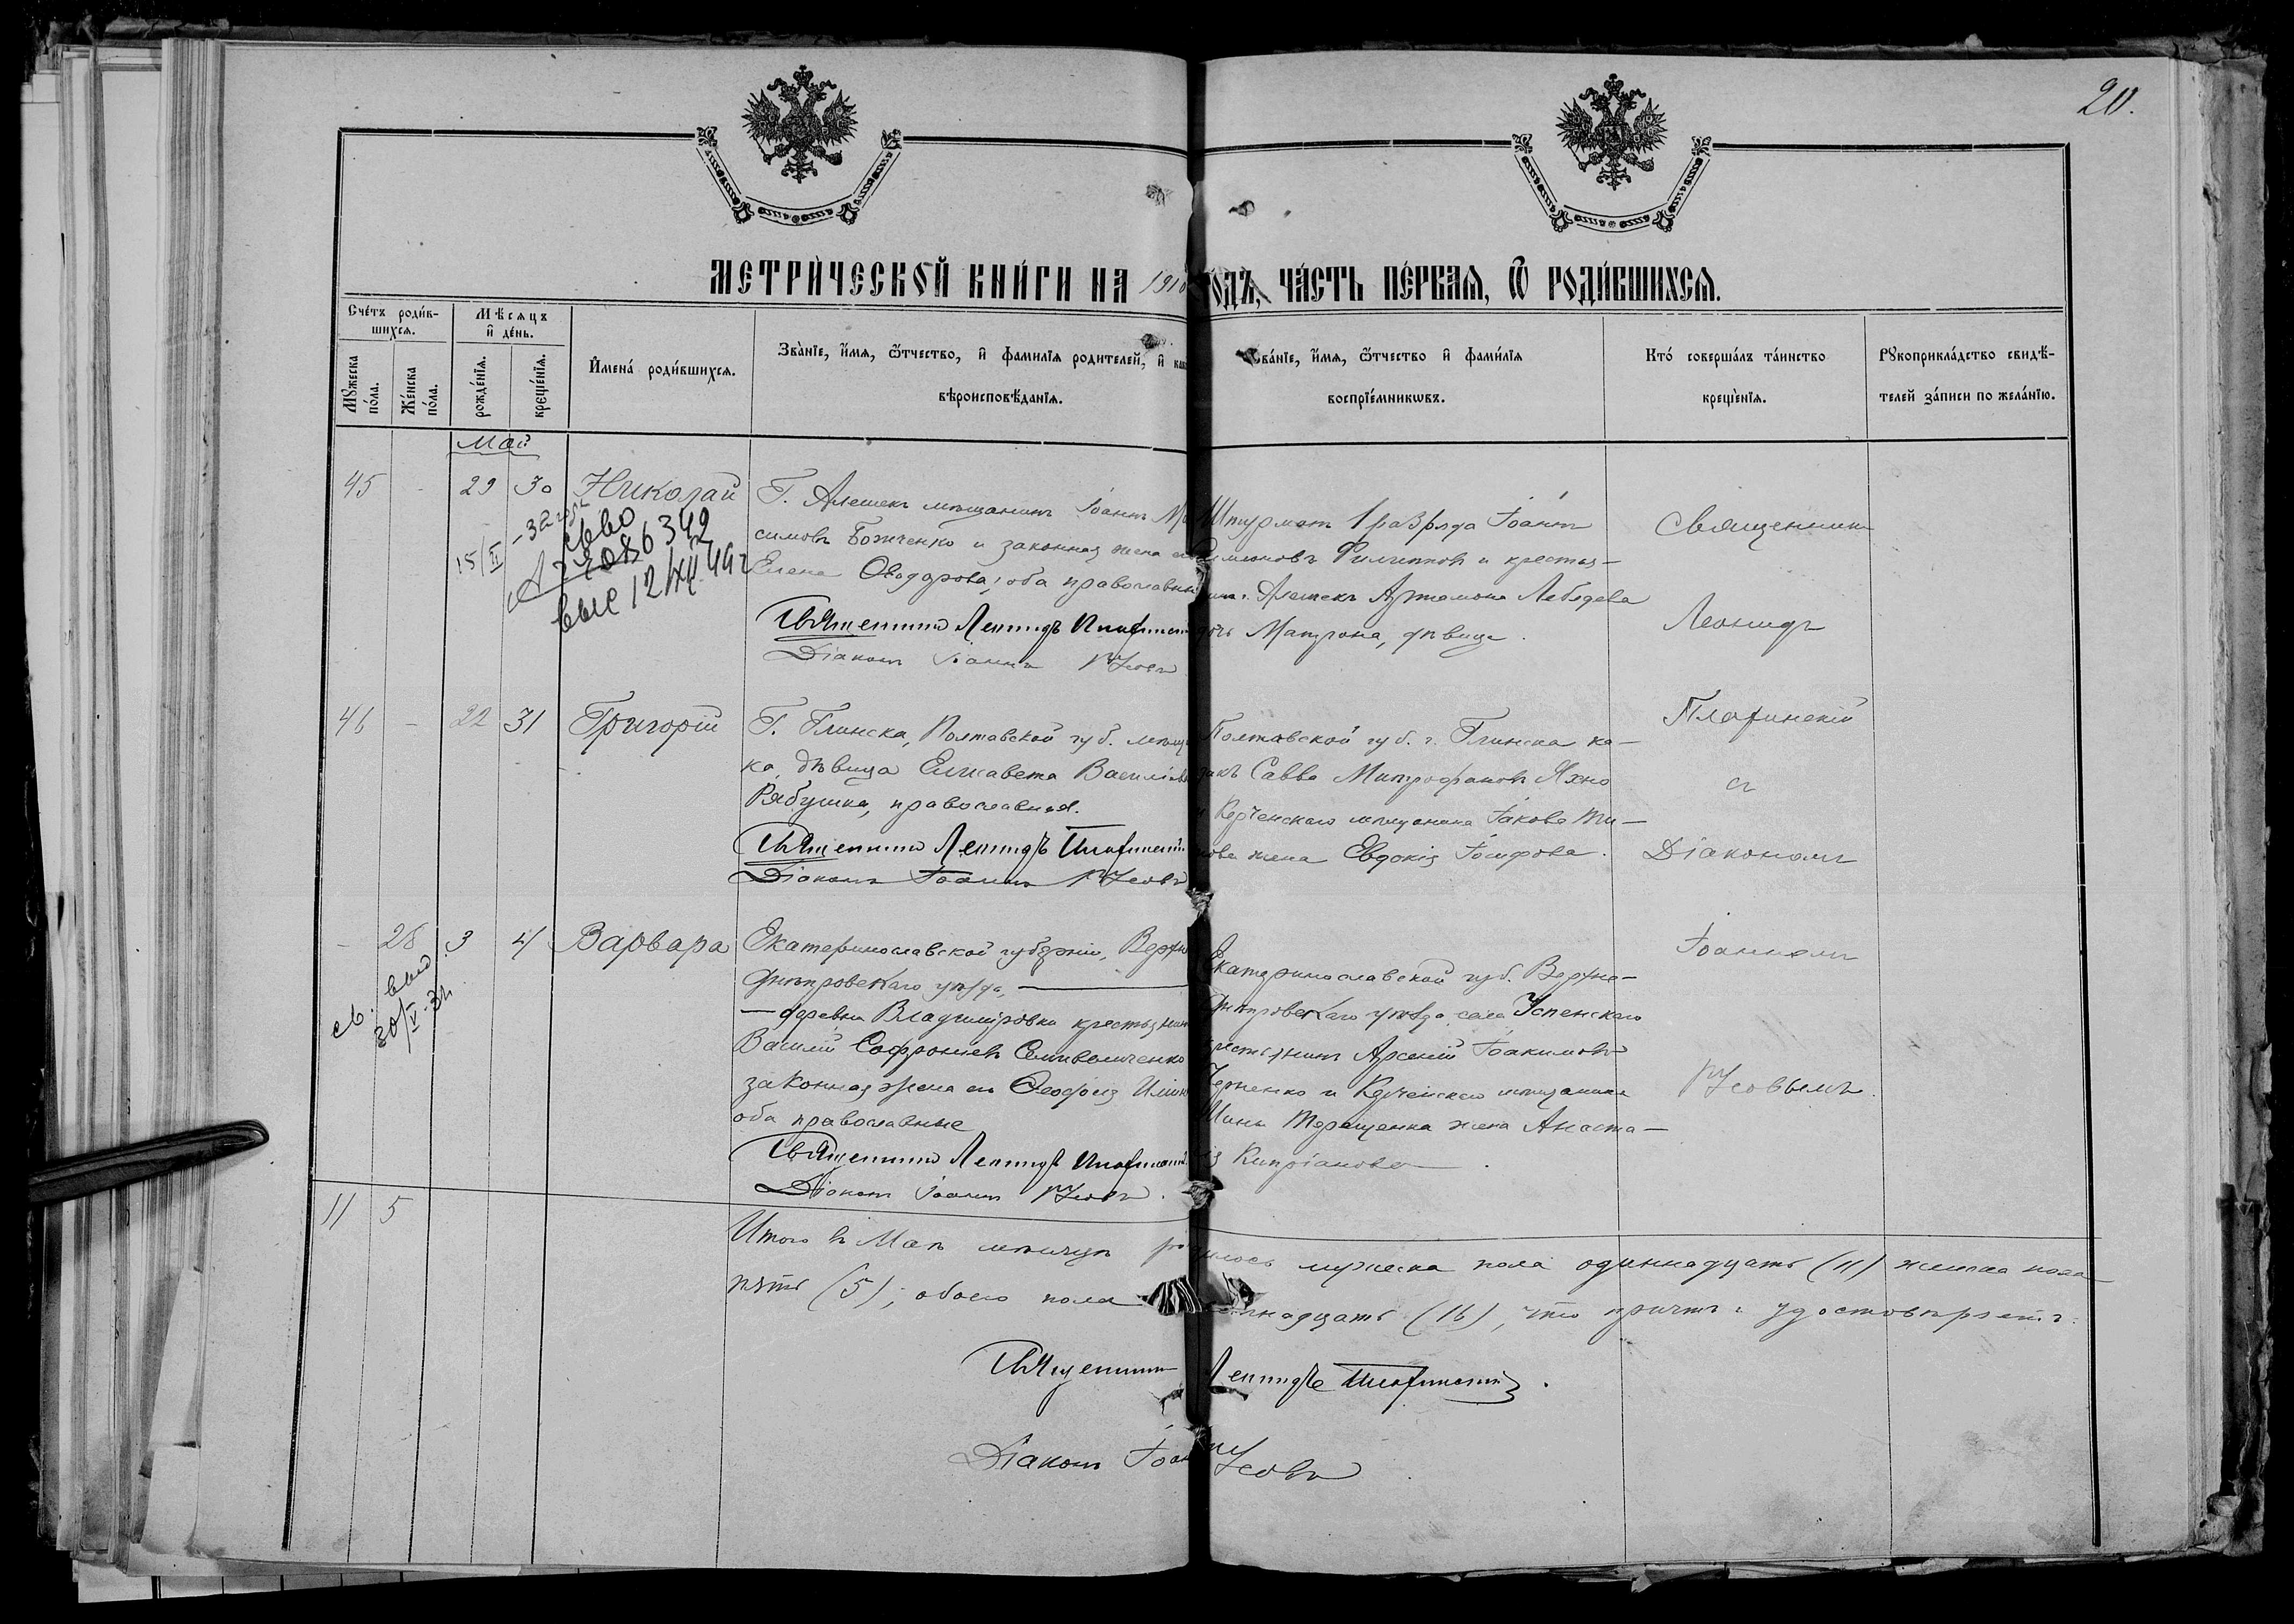 20.
МЕТРИ́ЧЕСКОЙ КНИ́ГИ НА 1910 ГОДЪ, ЧА́СТЬ ПЕ́РВАЯ, Ѿ РОДИ́ВШИХСЯ.
Сче́тъ роди́в-
шихся.
Мѣсяцъ
и҆ де́нь.
Мꙋжеска по́ла.
Же́нска по́ла.
рожде́нїя.
креще́нїя.
И҆мена̀ роди́вшихся.
Зва́нїе, и҆́мя, ѻ҆́тчество, и҆ фамилїя родителей, и҆
вѣроисповѣданїя.
Зва́нїе, и҆́мя, ѻ҆́тчество и҆ фами́лїя
воспрїе́мникѡвъ.
Кто̀ соверша́лъ та́инство
креще́нїя.
Рꙋкоприкла́дство свидѣ́-
телей за́писи по жела́нїю.
Май
45 - 29 30 Николай
Г. Алешекъ мѣщанинъ Іоаннъ
симовъ Божченко и законная жена его
Елена Ѳеодорова, оба православные
Священникъ Леонидъ
Діаконъ Іоаннъ Усовъ
15/II
-32 г.
12/XII 49 г
Штурманъ 1 разряда Іоаннъ
Симеоновъ Филипповъ и крестья-
Алешекъ Артамона Лебедева
дочь Матрона, дѣвица.
Священникъ
Леонидъ
46 - 22 31 Григорій
Г. Глинска, Полтавской губ. мѣщан
ка, дѣвица Елисавета Василіева
Рябушка, православная.
Священникъ Леонидъ
Діаконъ Іоаннъ Усовъ
Полтавской губ. г. Глинска ка-
закъ Савва Митрофановъ Яхно
и Керченскаго мѣщанина Іакова Ти-
това жена Евдокія Іосифова.
съ
Діакономъ
- 28 3 4 Варвара
св. выд.
30/V-32
Екатеринославской губерніи, Верхне
днѣпровскаго уѣзда,
деревни Владиміровки крестьянинъ
Василій Софроніевъ
законная жена его
оба православные
Священникъ Леонидъ
Діаконъ Іоаннъ Усовъ.
Екатеринославской губ. Верхне-
днѣпровскаго уѣзда, села Успенскаго
крестьянинъ Арсеній Іоакимовъ
и Керченскаго мѣщанина
Терещенка жена Анаста-
сія Кипріанова.
Іоанномъ
Усовымъ.
11 5
Итого въ Маѣ мѣсяцѣ родилось мужеска пола одиннадцать (11) женска пола
пять (5), обоего пола шестнадцать (16), что причтъ и удостовѣряетъ.
Священникъ Леонидъ
Діаконъ Іоаннъ Усовъ